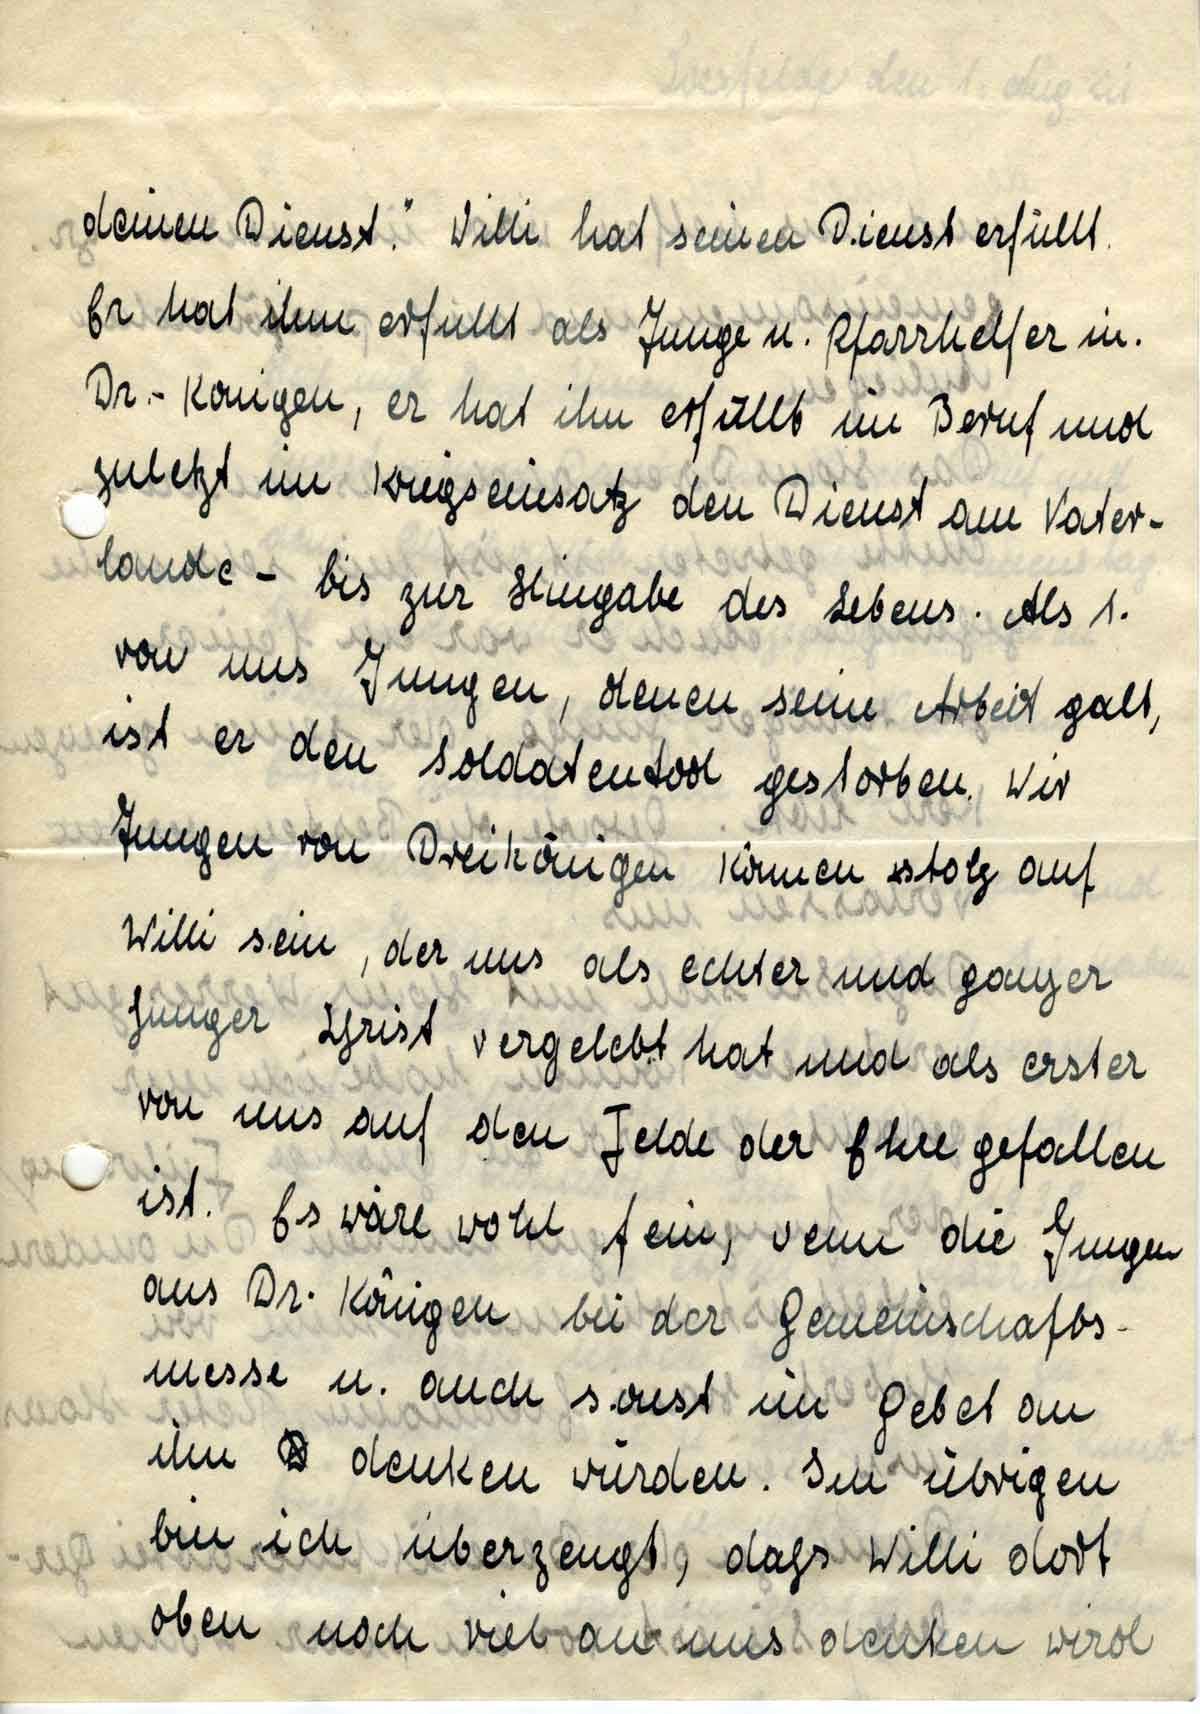 deinen Dienst." Willi hat seinen Dienst erfüllt.
Er hat ihm erfüllt als Junge u. Pfarrhelfer in.
Dr.- Königen, er hat ihn erfüllt im Beruf und
zuletzt im Kriegseinsatz den Dienst am Vater-
lande - bis zur Hingabe des Lebens. Als 1.
von uns Jungen, denen seine Arbeit galt,
ist er den Soldatentod gestorben. Wir
Jungen von Dreikönigen können stolz auf
Willi sein, der uns als echter und ganzer
junger Christ vergelebt hat und als erster
von uns auf den Felde der Ehre gefallen
ist. Es wäre wohl fein, wenn die Jungen
aus Dr. Königen bei der Gemeinschafts-
messe u. auch sonst im Gebet an
ihn denken würden. Im übrigen
bin ich überzeugt, dass Willi dort
oben noch viel an uns denken wird